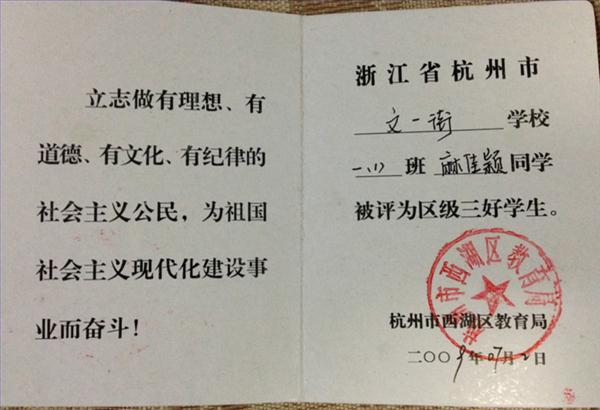 立志做有理想、有
道德、有文化、有纪律的
社会主义公民，为祖国
社会主义现代化建设事
业而奋斗！
浙江省杭州市
文一街学校
一(1)班麻佳颖同学
被评为区级三好学生。
杭州市西湖区教育局
杭州市西湖区教育局
二〇〇9年07月2日